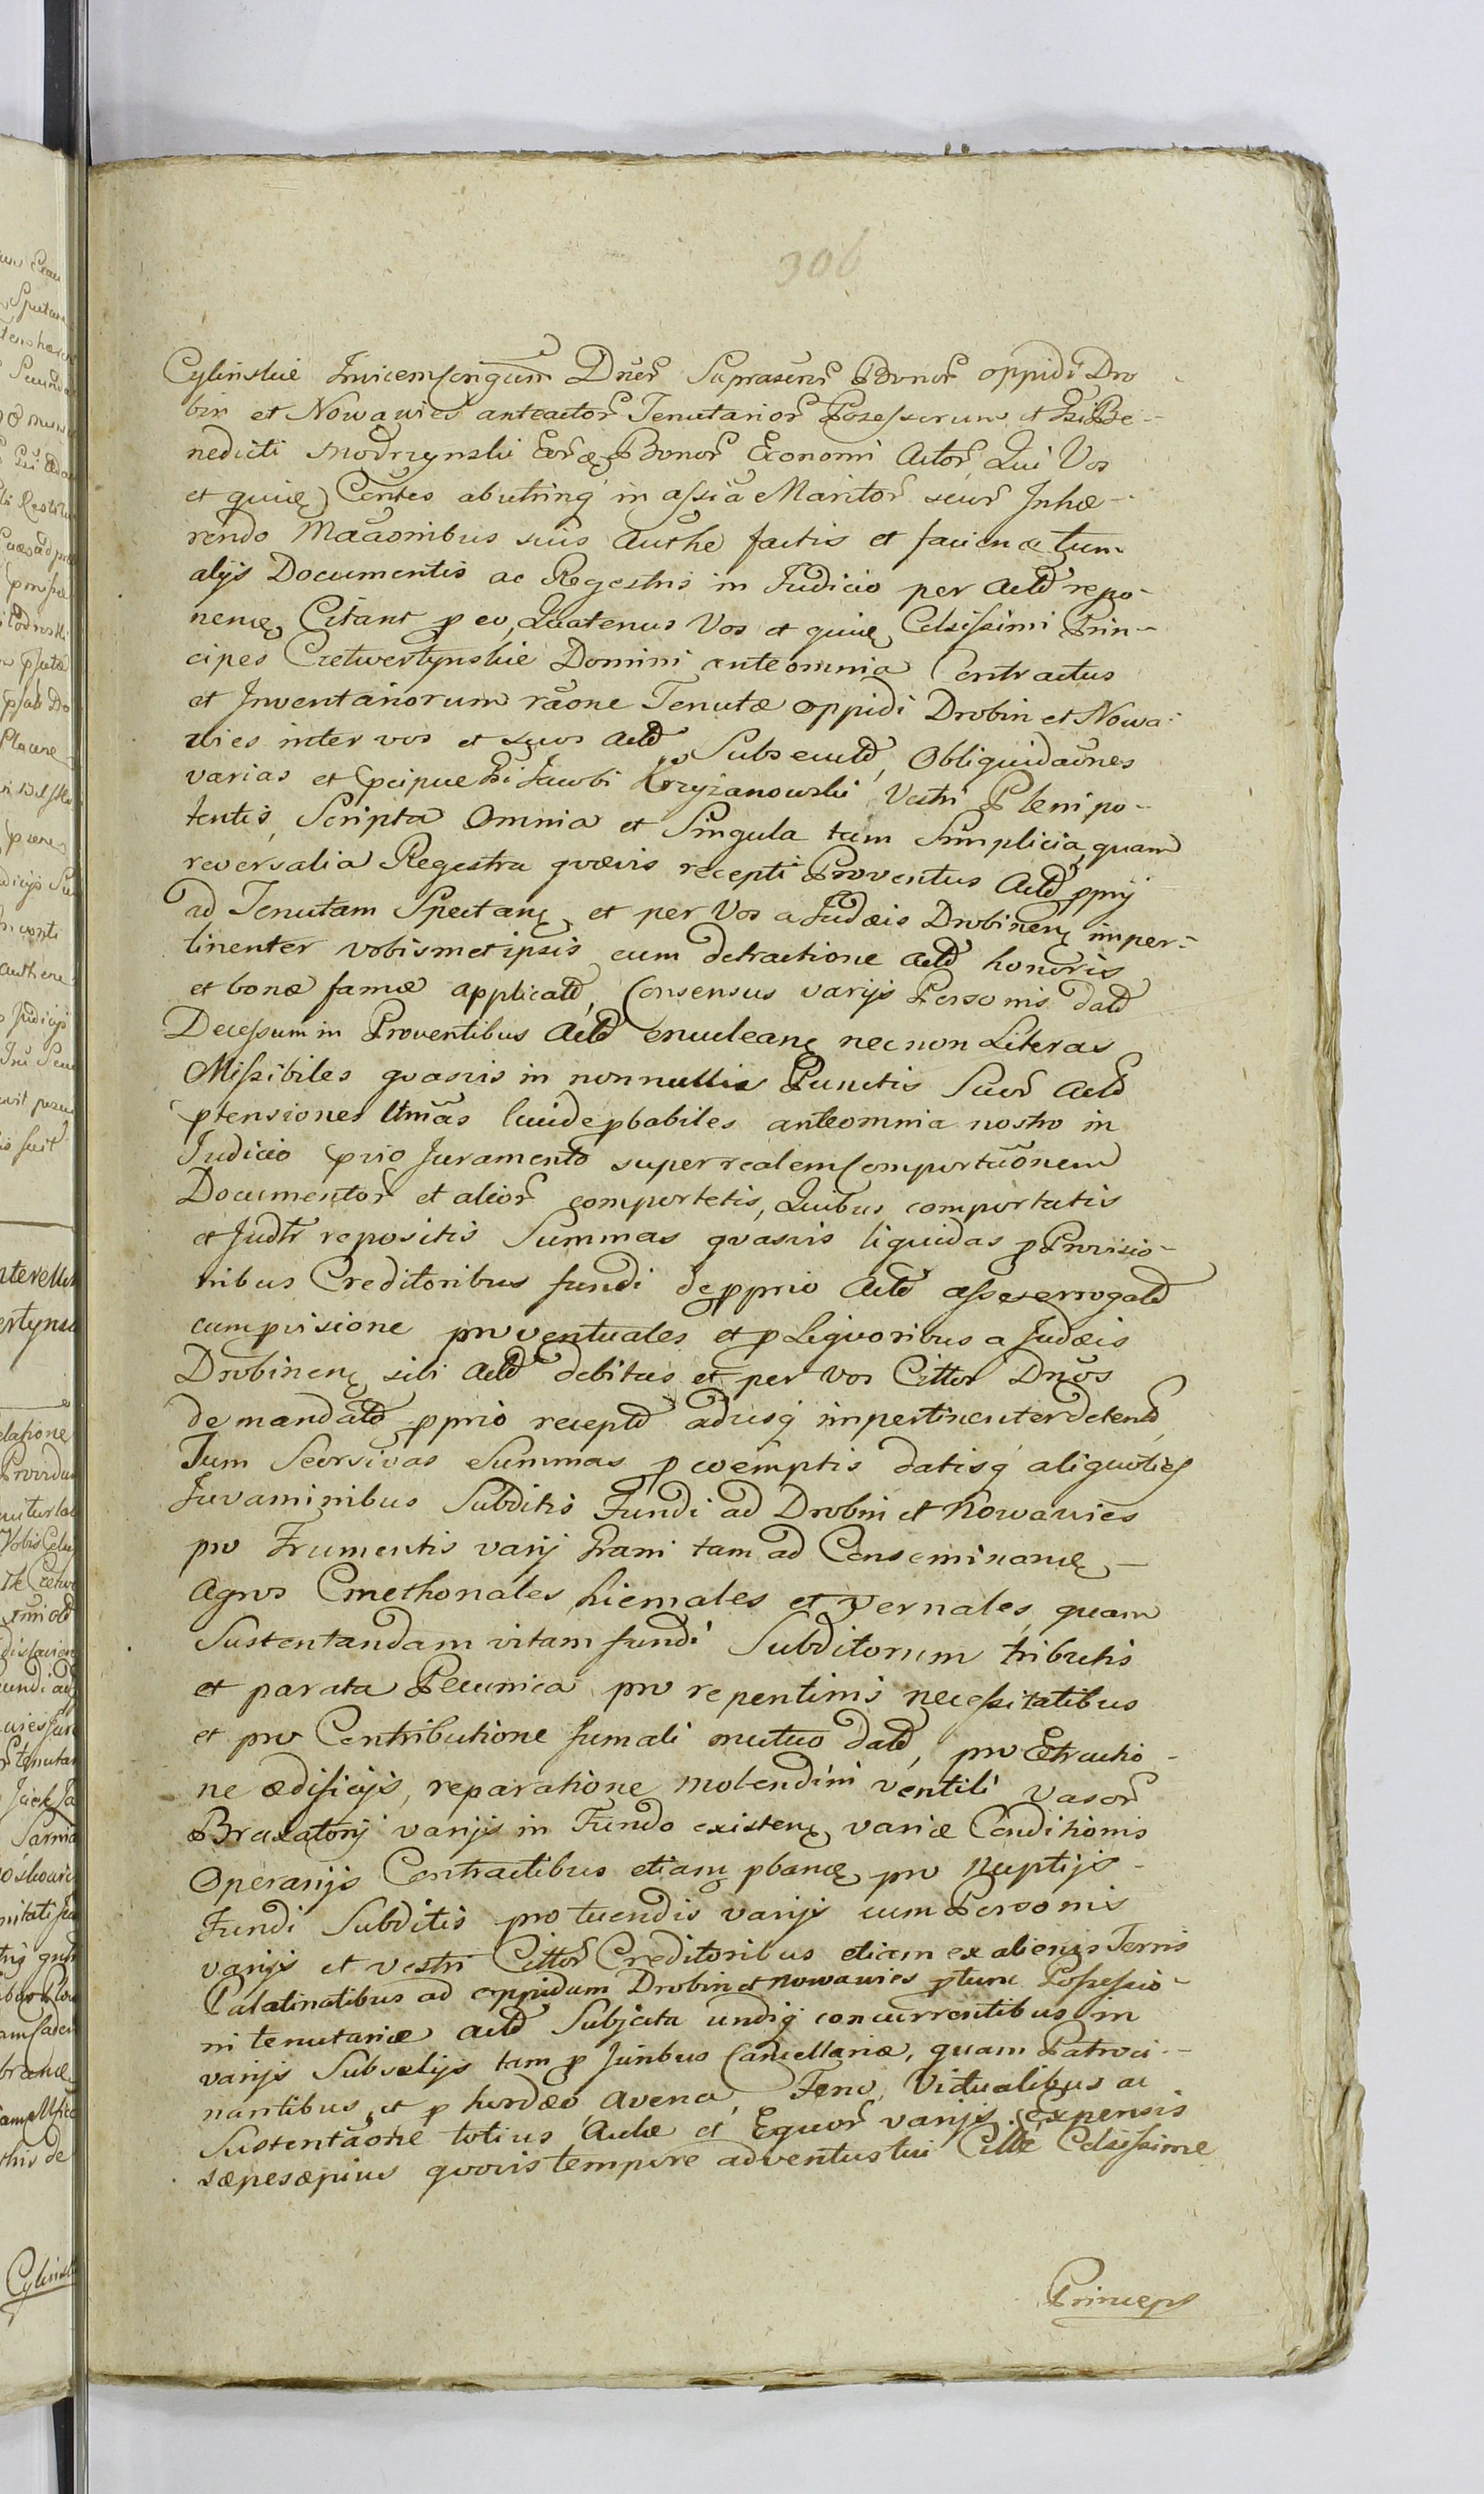 306
Cylinskie Invicem Congum Dnor Suprascr Bonor oppidi Dro
bin et Nowawies anteactor Tenutarior Possessorum et Gsi Be-
nedicti Modrzynski Eorz Bonor Economi Actor Qui Vos
et quivz Contes abutrinq in assia Maritor seur Inhæ-
rendo Maaonibus suis Authe factis et faciend tum
alijs Documentis ac Regestris in Judicio per Actd repo-
nenz Citant p eo, Quatenus Vos et quivz Celsissimi Prin-
cipes Czetwertynskie Domini anteomnia Contractus
et Inventariorum raone Tenutæ oppidi Drobin et Nowa
wies inter vos et suos Actd Subsecutd, Obliquidaones
varias et pcipue Gsi Jacobi Krzyżanowski Vestri Plenipo-
tentis, Scripta Omnia et Singula tam Simplicia, quam
reversalia Regestra quævis recepti Proventus Actd pprij
ad Tenutam Spectanz et per Vos a Judæis Drobinenz imper-
tinenter vobismetipsis cum detractione Actd honoris
et bonæ famæ applicatd, Consensus varijs Personis datd
Decessum in Proventibus Actd enucleanz necnon Literas
Missibiles quasvis in nonnullis Punctis Suor Actd
ptensiones Umas lucide pbabiles anteomnia nostro in
Judicio pvio Juramento super realem Comportaonem
Documentor et alior comportetis, Quibus comportatis
et Judtr repositis Summas quasvis liquidas p Provisio-
nibus Creditoribus fundi de pprio Actd assesserrogatd
cum pvisione proventuales et p Liquoribus a Judæis
Drobinenz sibi Actd debitas et per vos Cittor Dnos
de mandatd pprio receptd adusq impertinenter detentd,
Tum Seorsivas Summas p coëmptis datisq aliquoties
Juvaminibus Subditis Fundi ad Drobin et Nowawies
pro Frumentis varij Grani tam ad Conseminanz
Agros Cmethonales hiemales et vernales, quam
Sustentandam vitam fundi Subditorum tributis
et parata Pecunia pro repentinis necessitatibus
et pro Contributione fumali mutuo datd, pro Extructio-
ne ædificijs, reparatione molendini ventili vasor
Braxatorij varijs in Fundo existenz variæ Conditionis
Operarijs Contractibus etiam pbanz pro Nuptijs
Fundi Subditis pro tuendis varijs cum Personis
varijs et vestri Cittor Creditoribus etiam ex alienis Terris
Palatinatibus ad oppidum Drobin et Nowawies ptunc Possessio-
ni tenutariæ Actd Subjecta undiq concurrentibus in
varijs Subselijs tam p Juribus Cancellariæ, quam Patroci-
nantibus, et p hordeo, Avena, Feno, Victualibus ac
Sustentaone totius Aulæ et Equor varijs Expensis
sæpesæpius quovis tempore adventus tui Citte Celsissime
Princeps